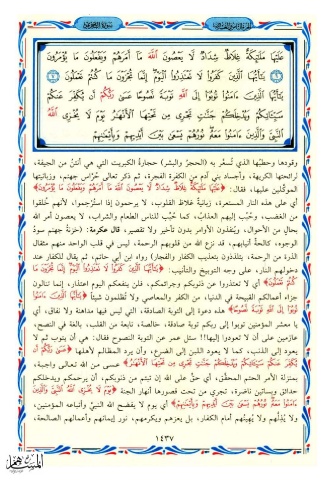 سورة التحريم
عَلَيْهَا مَلَٰٓئِكَةٌ غِلَاظٌ شِدَادٌ لَّا يَعْصُونَ ٱللَّهَ مَآ أَمَرَهُمْ وَيَفْعَلُونَ مَا يُؤْمَرُونَ
يَٰٓأَيُّهَا ٱلَّذِينَ كَفَرُوا۟ لَا تَعْتَذِرُوا۟ ٱلْيَوْمَ إِنَّمَا تُجْزَوْنَ مَا كُنتُمْ تَعْمَلُونَ
يَٰٓأَيُّهَا ٱلَّذِينَ ءَامَنُوا۟ تُوبُوٓا۟ إِلَى ٱللَّهِ تَوْبَةً نَّصُوحًا عَسَىٰ رَبُّكُمْ أَن يُكَفِّرَ عَنكُمْ
سَيِّـَٔاتِكُمْ وَيُدْخِلَكُمْ جَنَّٰتٍ تَجْرِى مِن تَحْتِهَا ٱلْأَنْهَٰرُ يَوْمَ لَا يُخْزِى ٱللَّهُ
ٱلنَّبِىَّ وَٱلَّذِينَ ءَامَنُوا۟ مَعَهُۥ نُورُهُمْ يَسْعَىٰ بَيْنَ أَيْدِيهِمْ وَبِأَيْمَٰنِهِمْ
وقودها وحطبُها الذي تُسعَّر به (الحجرُ والبشر) حجارةُ الكبريت التي هي أنتنُ من الجيفة،
لرائحتها الكريهة، وأجساد بني آدم من الكفرة الفجرة، ثم ذكر تعالى حُرَّاس جهنم، وزبانيتها
الموكَّلين عليها، فقال: ﴿عَلَيْهَا مَلَٰٓئِكَةٌ غِلَاظٌ شِدَادٌ لَّا يَعْصُونَ ٱللَّهَ مَآ أَمَرَهُمْ وَيَفْعَلُونَ مَا يُؤْمَرُونَ﴾
أي على هذه النار المستعرة، زبانيةٌ غلاظ القلوب، لا يرحمون إذا استُرحِموا، لأنهم خُلقوا
من الغضب، وحُبِّب إليهم العذابُ، كما حُبِّب للناس الطعام والشراب، لا يعصون أمر الله
بحالٍ من الأحوال، ويُنفذون الأوامر بدون تأخير ولا تقصير، قال عكرمة: (خزنةُ جهنم سودُ
الوجوه، كالحةٌ أنيابهم، قد نزع الله من قلوبهم الرحمة، ليس في قلب الواحد منهم مثقال
ذرة من الرحمة، يتلذذون بتعذيب الكفار والفجار) رواه ابن أبي حاتم، ثم يقال للكفار عند
دخولهم النار، على وجه التوبيخ والتأنيب: ﴿يَٰٓأَيُّهَا ٱلَّذِينَ كَفَرُوا۟ لَا تَعْتَذِرُوا۟ ٱلْيَوْمَ إِنَّمَا تُجْزَوْنَ مَا
كُنتُمْ تَعْمَلُونَ﴾ أي لا تعتذروا عن ذنوبكم وجرائمكم، فلن ينفعكم اليوم اعتذار، إنما تنالون
جزاء أعمالكم القبيحة في الدنيا، من الكفر والمعاصي ولا تُظلمون شيئاً ﴿يَٰٓأَيُّهَا ٱلَّذِينَ ءَامَنُوا۟
تُوبُوٓا۟ إِلَى ٱللَّهِ تَوْبَةً نَّصُوحًا﴾ هذه دعوة إلى التوبة الصادقة، التي ليس فيها مداهنة ولا نفاق، أي
يا معشر المؤمنين توبوا إلى ربكم توبة صادقة، خالصة، نابعة من القلب، بالغة في النصح،
عازمين على أن لا تعودوا إليها!! سئل عمر عن التوبة النصوح فقال: هي أن يتوب ثم لا
يعود إلى الذنب، كما لا يعود اللبن إلى الضرع، وأن يرد المظالم لأهلها ﴿عَسَىٰ رَبُّكُمْ أَن
يُكَفِّرَ عَنكُمْ سَيِّـَٔاتِكُمْ وَيُدْخِلَكُمْ جَنَّٰتٍ تَجْرِى مِن تَحْتِهَا ٱلْأَنْهَٰرُ﴾ عسى من الله تعالى واجبة،
بمنزلة الأمر الحتم المحقَّق، أي حقٌّ على الله إن تبتم من ذنوبكم، أن يرحمكم ويدخلكم
حدائق وبساتين ناضرة، تجري من تحت قصورها أنهار الجنة ﴿يَوْمَ لَا يُخْزِى ٱللَّهُ ٱلنَّبِىَّ وَٱلَّذِينَ
ءَامَنُوا۟ مَعَهُۥ نُورُهُمْ يَسْعَىٰ بَيْنَ أَيْدِيهِمْ وَبِأَيْمَٰنِهِمْ﴾ أي يوم لا يفضح الله النبيَّ وأتباعه المؤمنين،
ولا يُذلُّهم ولا يُهينُهم أمام الكفار، بل يعزهم ويكرمهم، نور إيمانهم وأعمالهم الصالحة،
١٤٣٧